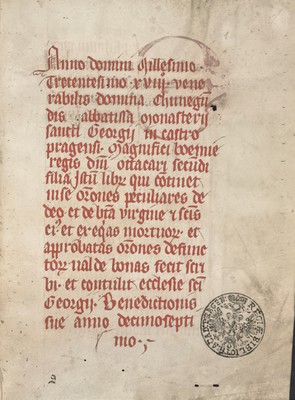 Anno domini Millesimo
Trecentesimo xviij vene
rabilis domina Chunegū
dis abbatissa monasterii
sancti Georgii in castro
pragensi. Magnifici boemie
regis dn̄i ottacari secundi
filia Istū libr̄ qui continet
in se or̄ones peculiares de
deo et de bt̄a virgine et sc̄is
ei et exequias mortuor̄ et
approbatas or̄ones defunc
tor̄ valde bonas fecit scri
bi et contulit ecclesie sc̄i
Georgii. Benedictionis
sue anno decimosepti
mo
2